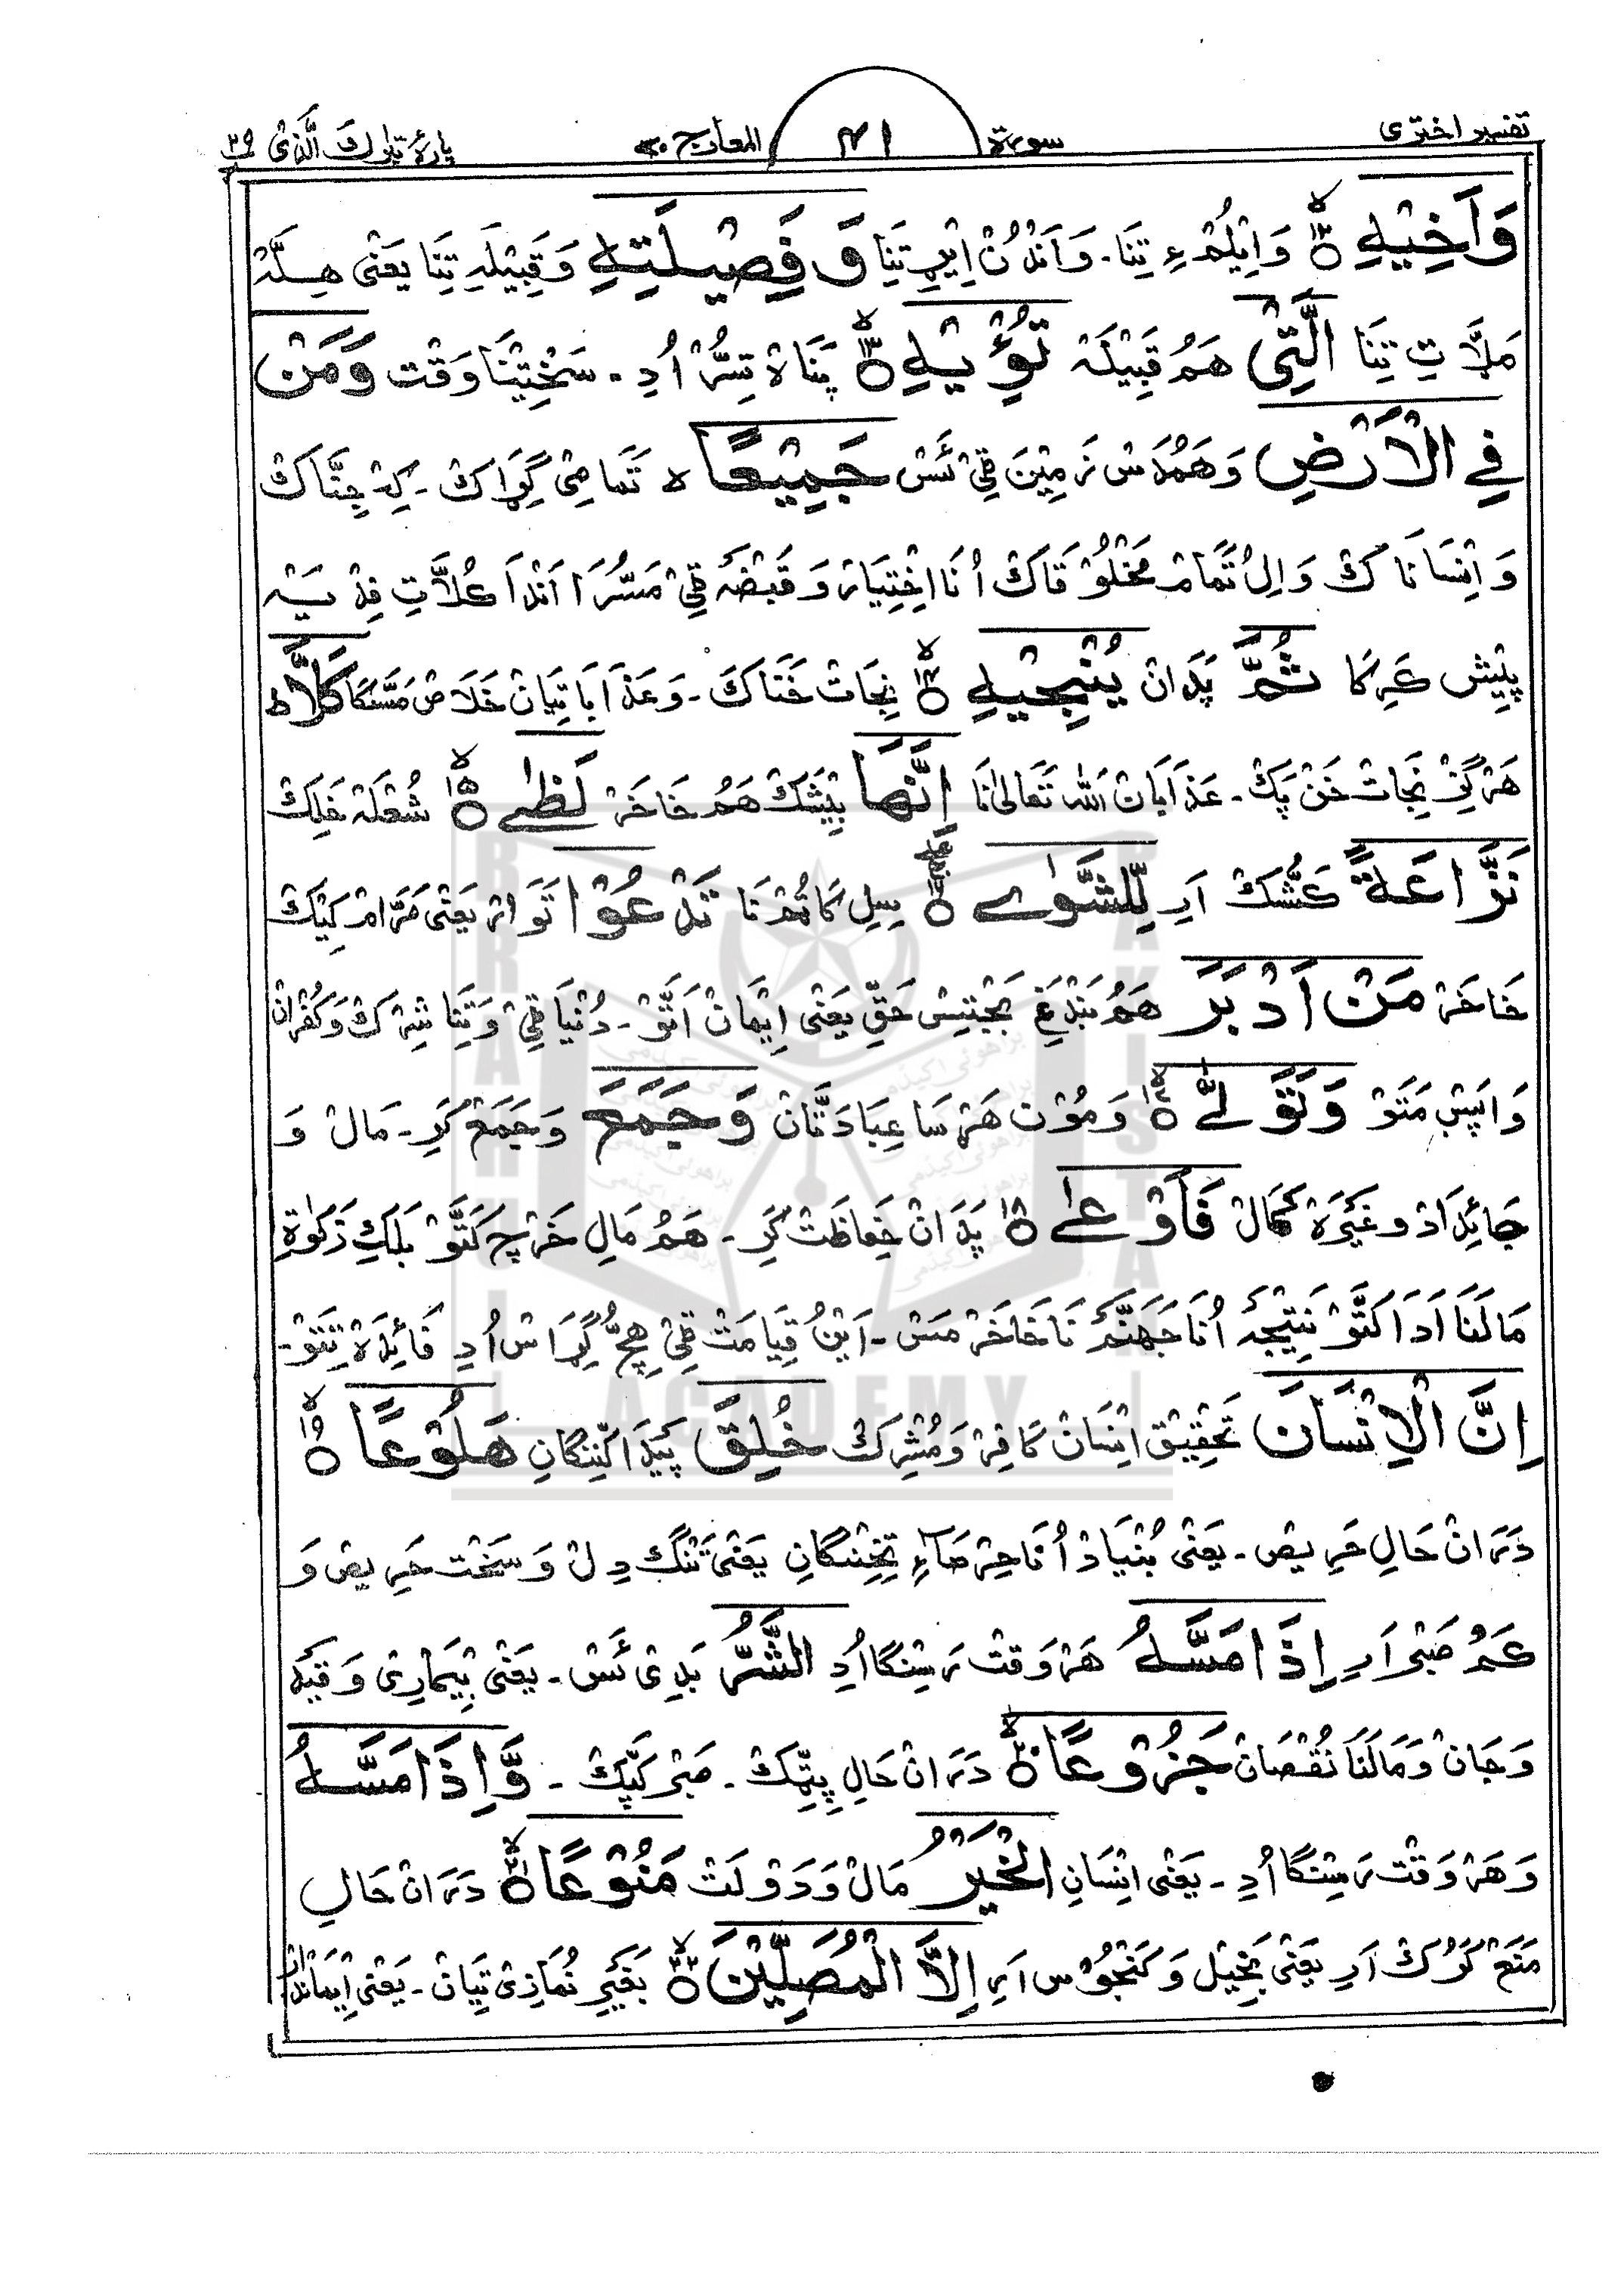 تفسیر اختری سورۃ ۴۱ المعارج ۷۰ پارۂ تبٰرک الّذی ۲۹
وَاَخِیْہِ ۱۲ وَ اِیْلُمْ ءِ تِنَا۔ وَ اَنْدُنْ اِیْڑِ تِنَا وَ فَصِیْلَتِہِ وَ قَبِیْلَہِ تِنَا یَعْنٰی ھِلَّہْ
مَلَّاتِ تِنَا الَّتِیْ ھَمُ قَبِیْلَہْ تُؤْیْہِ ۱۳ پَنَاہْ تِسُّرْ اُدِ۔ سَخْتِیْنَا وَقْت وَمَنْ
فِی الْاَرْضِ وَ ھَمُدَسْ زَمِیْنَ ٹِیْ ئَسْ جَمِیْعًا لا تَمَامِیْ گِڑَاکْ۔ کِہْ جِنَّاکْ
وَ اِنْسَانَاکْ وَ اِلُ تَمَامْ مَخْلُوْقَاکْ اُنَا اِخْتِیَارْ وَ قَبْضَہْ ٹِیْ مَسُّرَا اَنْدَا کُلَّاتِ فِدْیَہْ
پِیْش کَرِکَا ثُمَّ پَدَانْ یُنْجِیْہِ ۱۴ نِجَاتْ خَنَاکَ۔ وَ عَذَابَاتِیَانْ خَلَاصْ مَسَّکَا کَلَّا ط
ھَرْگِزْ نِجَاتْ خَنْپَکْ۔ عَذَابَانْ اَللّٰہ تَعَالٰی نَا اِنَّھَا بِیْشَکْ ھَمُ خَاخَرْ لَظٰی ۱۵ شُعْلَہْ خَلِکْ
نَزَّاعَۃً کَشَّکْ اَرِ لِّلشَّوٰی ۱۶ سِلِ کَاٹُمْ نَا تَدْعُوْا تَوَارْ یَعْنٰی مَرَّامْ کِیْکْ
خَاخَرْ مَنْ اَدْبَرَ ھَمُ بَنْدَغِ بَجْتِسْ حَقِّ یَعْنٰی اِیْمَانْ اَتَّوْ۔ دُنْیَا ٹِیْ وَ تِنَا شِرْکْ وَ کُفْرَانْ
وَاپَسِ مَتَوْ وَتَوَلّٰی ۱۷ وَ مُوْن ھَڑْسَا عِبَادَتَّانْ وَجَمَعَ وَ جَمَعْ کَرِ۔ مَالْ وَ
جَائِدَادْ وغَیْرَہْ کُمَالْ فَاَوْعٰی ۱۸ پَدَانْ حِفَاظَتْ کَرِ۔ ھَمُ مَالِ خَرْچ کَتَّوْ بَلْکِ زَکٰوۃِ
مَالَنَا اَدَا کَتَّوْ نَتِیْجَہْ اُنَا جَھَنَّمْ نَا خَاخَرْ مَسْ۔ اَیْنُ قِیَامَتْ ٹِیْ ھِچُّ گِڑَاسْ اُدِ فَائِدَہْ تِتَوْ۔
اِنَّ الْاِنْسَانَ تَحْقِیْق اِنْسَانْ کَافِرْ وَ مُشْرِکْ خُلِقَ پَیْدَا کِّنِنگَانِ ھَلُوْعًا ۱۹
دَرَانْ حَالِ حَرِیْص۔ یَعْنٰی بُنْیَادْ اُنَا حِرْصَاءِ تِخِنْگَانِ یَعْنٰی تَنْگْ دِلْ وَ سَخْت حَرِیْص وَ
کَمْ صَبْر اَرِ اِذَا مَسَّہُ ھَرْوَقْتْ رَسِنْگَا اُدِ الشَّرُّ بَدِیْ ئَسْ۔ یَعْنٰی بِیْمَارِی وَ قَیْد
وَ جَانْ وَ مَالَنَا نُقْصَانْ جَزُوْعًا ۲۰ دَرَانْ حَالِ پِٹِّکْ۔ صَبْر کَپَّکْ۔ وَّاِذَا مَسَّہُ
وَ ھَرْ وَقْتْ رَسِنْگَا اُدِ۔ یَعْنٰی اِنْسَانِ الْخَیْرُ مَالْ وَ دَوْلَتْ مَنُوْعًا ۲۱ دَرَانْ حَالِ
مَنَعْ کَرُکْ اَرِ یَعْنٰی بَخِیْل وَ کَنْجُوْس اَرِ اِلَّا الْمُصَلِّیْنَ ۲۲ بَغَیْرِ نُمَازِیْ تِیَانْ۔ یَعْنٰی اِیْمَاندَارْ
BRAHUI ACADEMY PAKISTAN